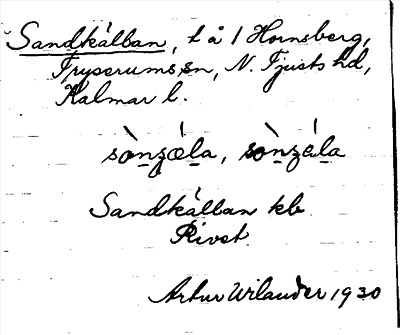 Sandkálban, t å 1 Hornsberg,
Fryserums sn, N. Tjusts hd,
Kalmar l.
sònzǽla, sònzéla
Sandkálban kb
Rivet
Artur Wilander 1930